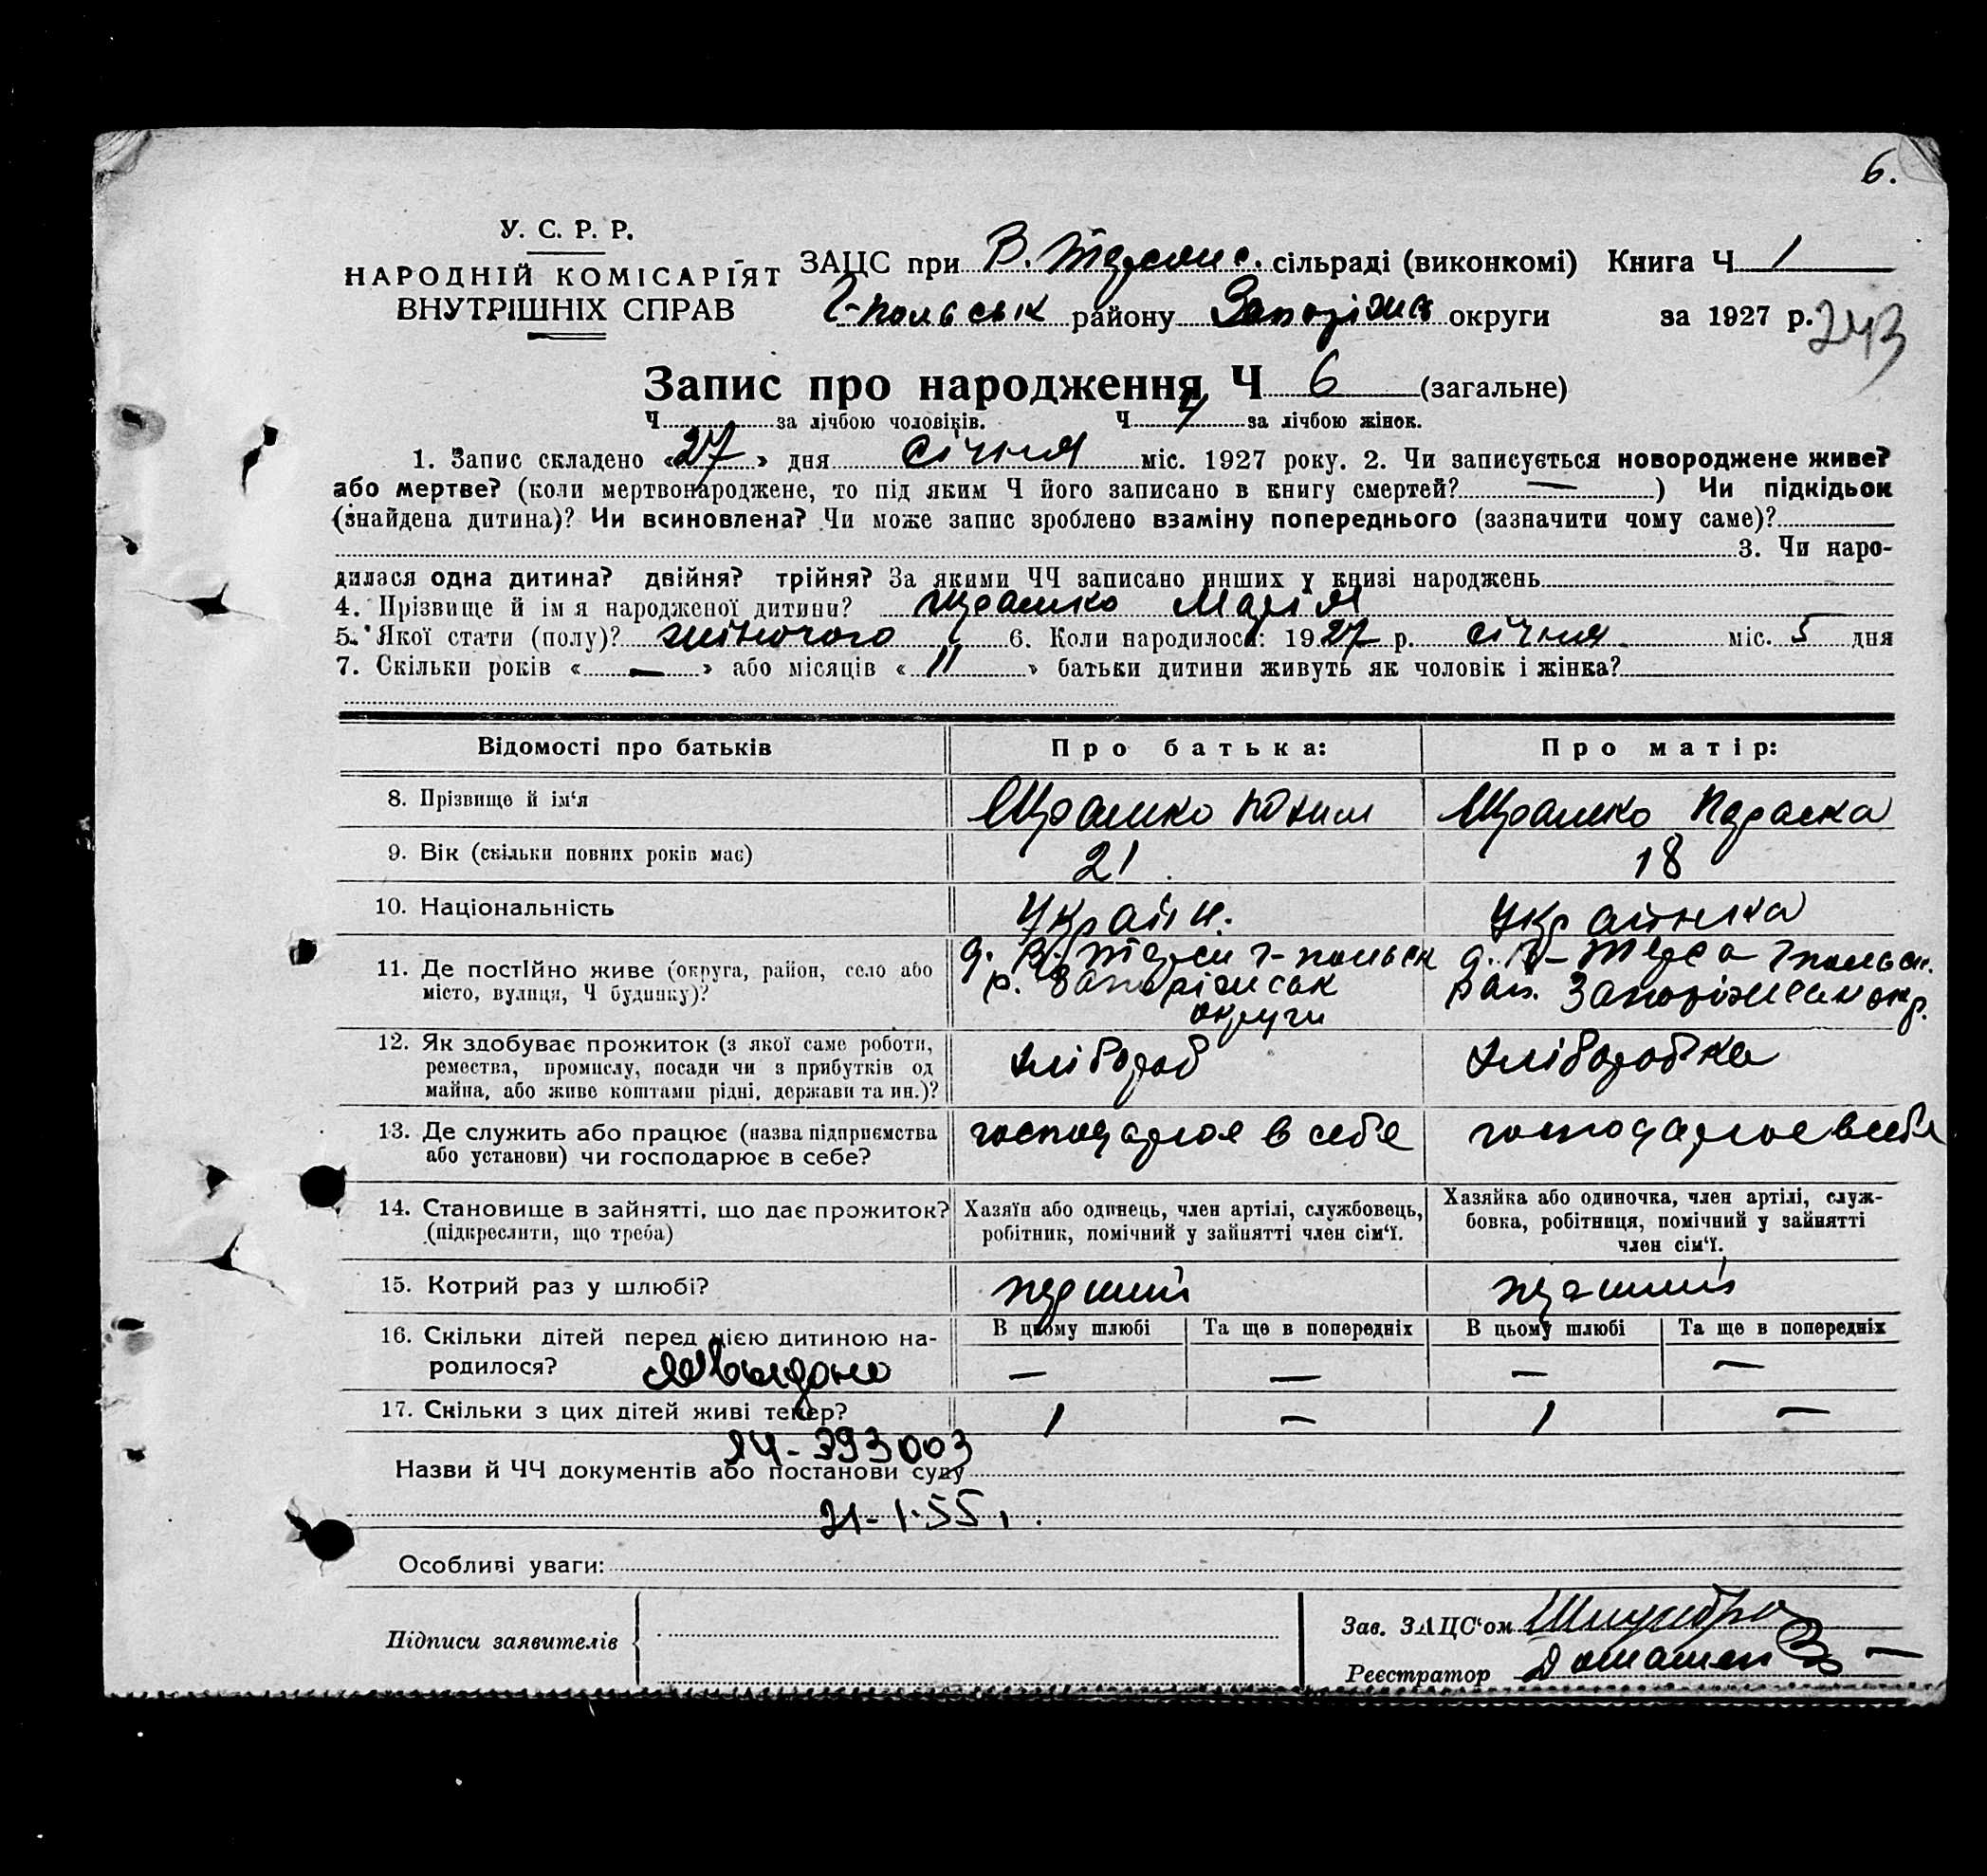 6.
У. С. Р. Р.
НАРОДНІЙ КОМІСАРІЯТ
ВНУТРІШНІХ СПРАВ
ЗАЦС при В. Терсянс. сільраді (виконкомі) Книга Ч 1
Г-польськ району Запоріжж округи за 1927 р.
243
Запис про народження Ч 6 (загальне)
Ч за лічбою чоловіків. Ч 4 за лічбою жінок.
1. Запис складено «27» дня січня міс. 1927 року. 2. Чи записується новороджене живе?
або мертве? (коли мертвонароджене, то під яким Ч його записано в книгу смертей? —) Чи підкідьок
(знайдена дитина)? Чи всиновлена? Чи може запис зроблено взаміну попереднього (зазначити чому саме)?
3. Чи наро-
дилася одна дитина? двійня? трійня? За якими ЧЧ записано инших у книзі народжень
4. Прізвище й ім я народженої дитини? Марія
5. Якої стати (полу)? жіночого 6. Коли народилося: 1927 р. січня міс. 5 дня
7. Скільки років «—» або місяців «11» батьки дитини живуть як чоловік і жінка?
Відомості про батьків Про батька: Про матір:
8. Прізвище й ім'я Юхим Параска
9. Вік (скільки повних років має) 21 18
10. Національність Україн. Українка
11. Де постійно живе (округа, район, село або
місто, вулиця, Ч будинку)?
с. В. Терси Г-польськ
р. Запоріжськ
округи
с. В-Терса Гпольськ.
рай. Запоріжськ окр.
12. Як здобуває прожиток (з якої саме роботи,
ремества, промислу, посади чи з прибутків од
майна, або живе коштами рідні, держави та ин.)?
хлібороб хліборобка
13. Де служить або працює (назва підприємства
або установи) чи господарює в себе?
господарює в себе господарює в себе
14. Становище в зайнятті, що дає прожиток?
(підкреслити, що треба)
Хазяїн або одинець, член артілі, службовець,
робітник, помічний у зайнятті член сім'ї.
Хазяйка або одиночка, член артілі, служ-
бовка, робітниця, помічний у зайнятті
член сім'ї.
15. Котрий раз у шлюбі? перший перший
16. Скільки дітей перед цією дитиною на-
родилося?
В цьому шлюбі Та ще в попередніх В цьому шлюбі Та ще в попередніх
— — — —
17. Скільки з цих дітей живі тепер? 1 — 1 —
ЯЧ-393003
Назви й ЧЧ документів або постанови суду
21-1-55
Особливі уваги:
Підписи заявителів
Зав. ЗАЦС'ом
Реєстратор